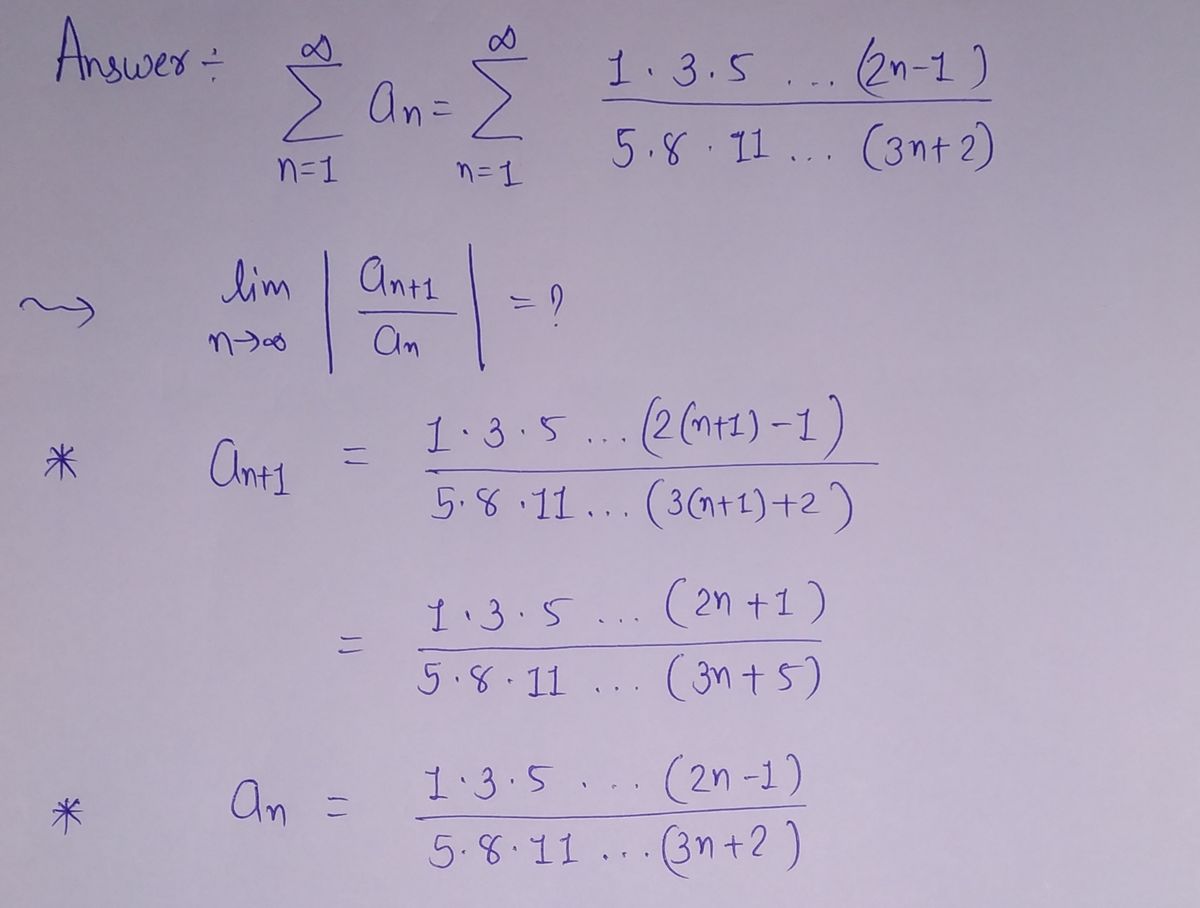 Answer÷ ∞ ∑ n=1 an = ∞ ∑ n=1 1·3·5 ... (2n-1) / 5·8·11 ... (3n+2)
⇝ lim n→∞ | an+1 / an | = ?
* an+1 = 1·3·5 ... (2(n+1)-1) / 5·8·11 ... (3(n+1)+2)
= 1·3·5 ... (2n+1) / 5·8·11 ... (3n+5)
* an = 1·3·5 ... (2n-1) / 5·8·11 ... (3n+2)